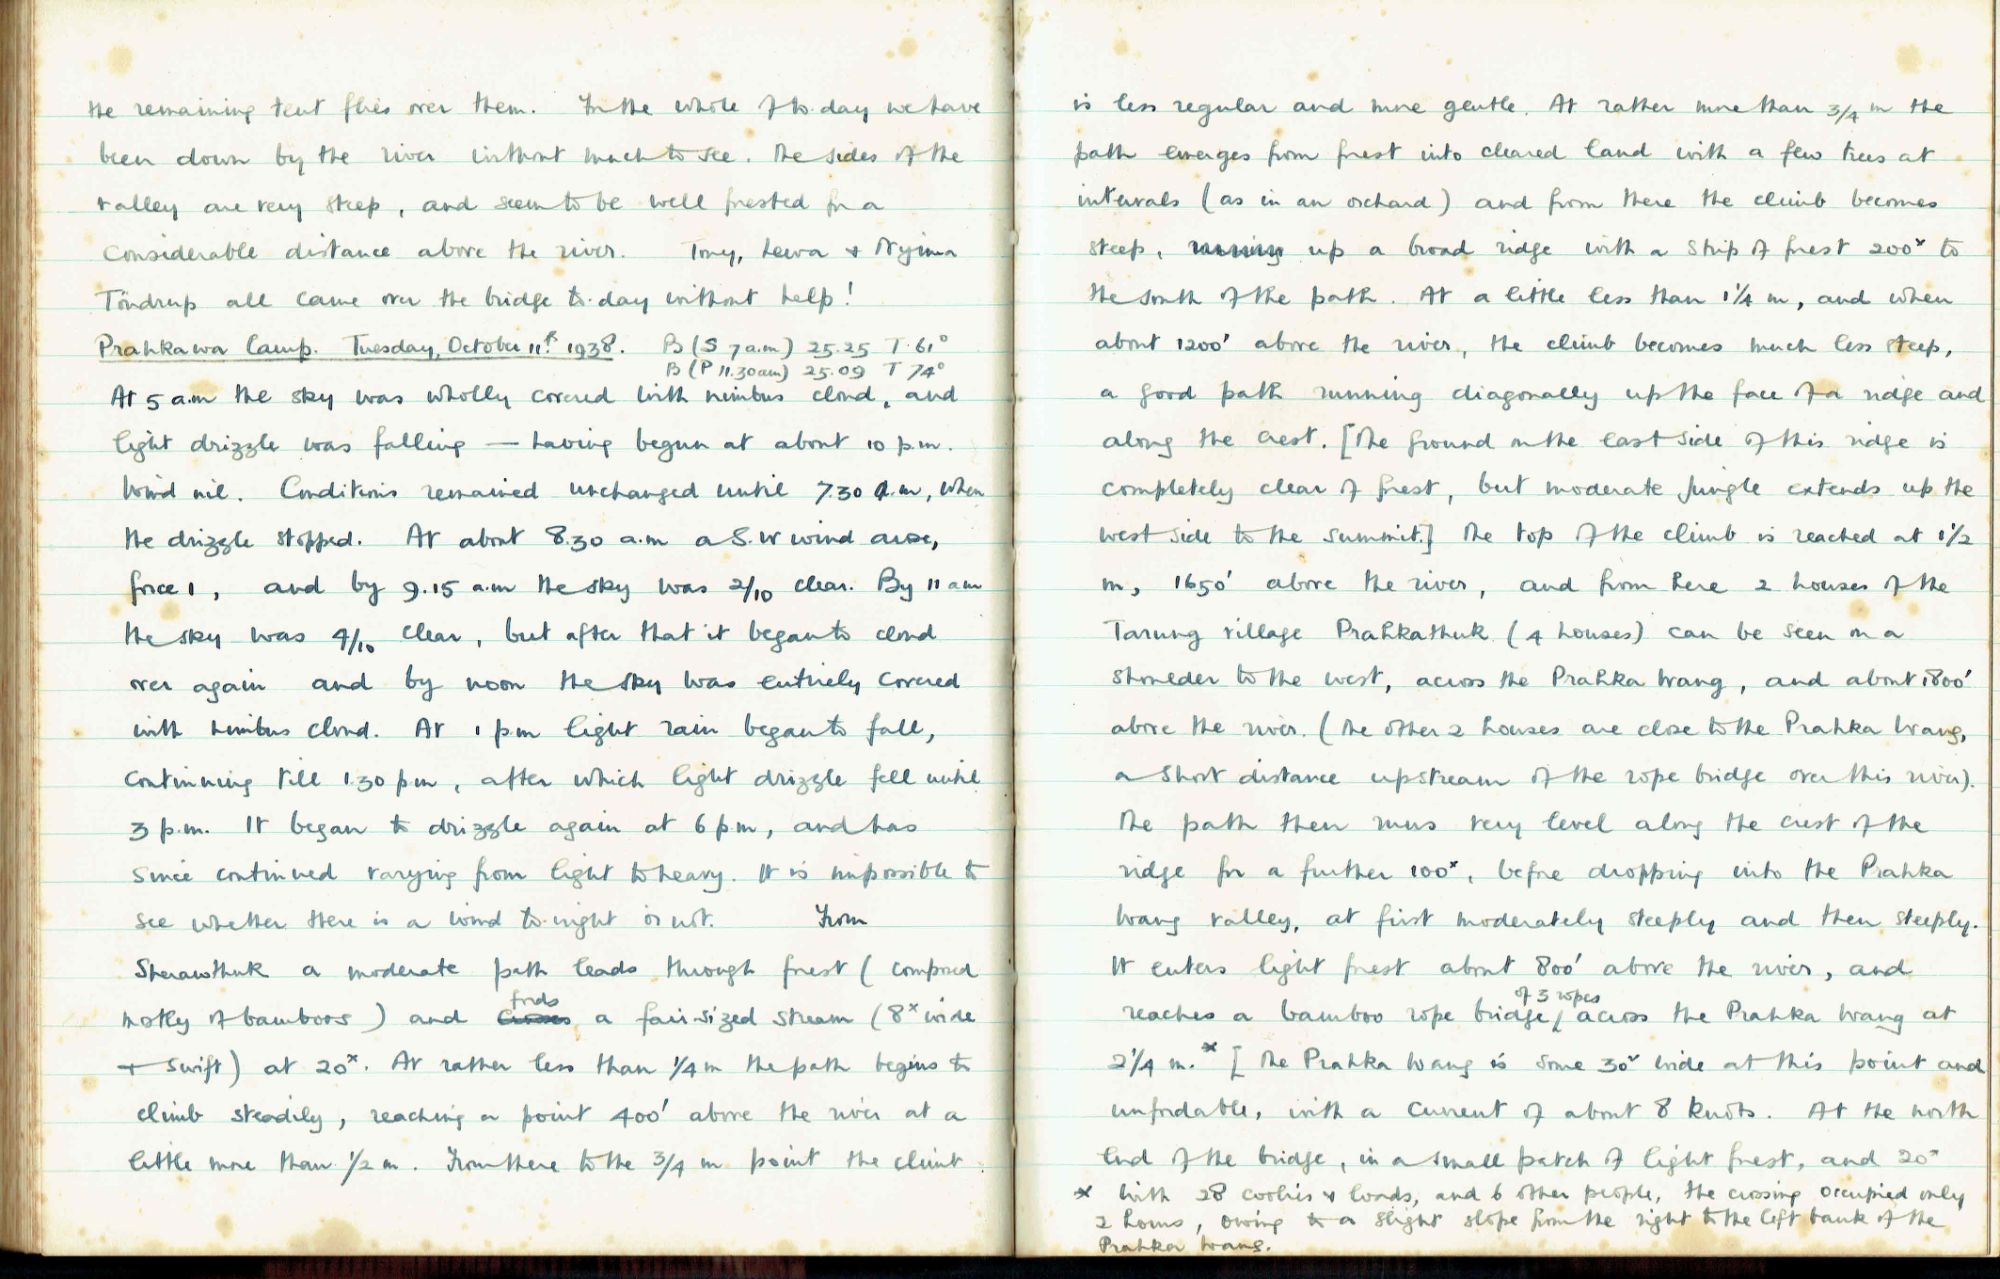 the remaining tent flies over them. In the whole of to-day we have
been down by the river without much to see. The sides of the
valley are very steep, and seem to be well forested for a
considerable distance above the river. Tony, Lewa + Nyima
Töndrup all came over the bridge to-day without help!
Prahkawa Camp. Tuesday, October 11th 1938. B (S 7 a.m) 25.25 T 61°
B (P 11.30am) 25.09 T 74°
At 5 a.m the sky was wholly covered with nimbus cloud, and
light drizzle was falling — having begun at about 10 p.m.
Wind nil. Conditions remained unchanged until 7.30 a.m, when
the drizzle stopped. At about 8.30 a.m a S.W wind arose,
force 1, and by 9.15 a.m the sky was 2/10 clear. By 11 am
the sky was 4/10 clear, but after that it began to cloud
over again and by noon the sky was entirely covered
with nimbus cloud. At 1 p m light rain began to fall,
continuing till 1.30 p m, after which light drizzle fell until
3 p.m. It began to drizzle again at 6 p m, and has
since continued varying from light to heavy. It is impossible to
see whether there is a wind to-night or not. From
Sherawthuk a moderate path leads through forest (composed
mostly of bamboos) and fords a fair-sized stream (8ˣ wide
+ swift) at 20ˣ. At rather less than 1/4 m the path begins to
climb steadily, reaching a point 400' above the river at a
little more than 1/2 m. From there to the 3/4 m point the climb
is less regular and more gentle. At rather more than 3/4 m the
path emerges from forest into cleared land with a few trees at
intervals (as in an orchard) and from there the climb becomes
steep, running up a broad ridge with a strip of forest 200ˣ to
the south of the path. At a little less than 1 1/4 m, and when
about 1200' above the river, the climb becomes much less steep,
a good path running diagonally up the face of a ridge and
along the crest. [The ground on the east side of this ridge is
completely clear of forest, but moderate jungle extends up the
west side to the summit.] The top of the climb is reached at 1 1/2
m, 1650' above the river, and from here 2 houses of the
Tarung village Prahkathuk (4 houses) can be seen on a
shoulder to the west, across the Prahka Wang, and about 1800'
above the river. (The other 2 houses are close to the Prahka Wang,
a short distance upstream of the rope bridge over this river).
The path then runs very level along the crest of the
ridge for a further 100ˣ, before dropping into the Prahka
Wang valley, at first moderately steeply and then steeply.
It enters light forest about 800' above the river, and
reaches a bamboo rope bridge of 3 ropes across the Prahka Wang at
2 1/4 m.* [The Prahka Wang is some 30ˣ wide at this point and
unfordable, with a current of about 8 knots. At the north
end of the bridge, in a small patch of light forest, and 20ˣ
* With 28 coolies + loads, and 6 other people, the crossing occupied only
2 hours, owing to a slight slope from the right to the left bank of the
Prahka Wang.